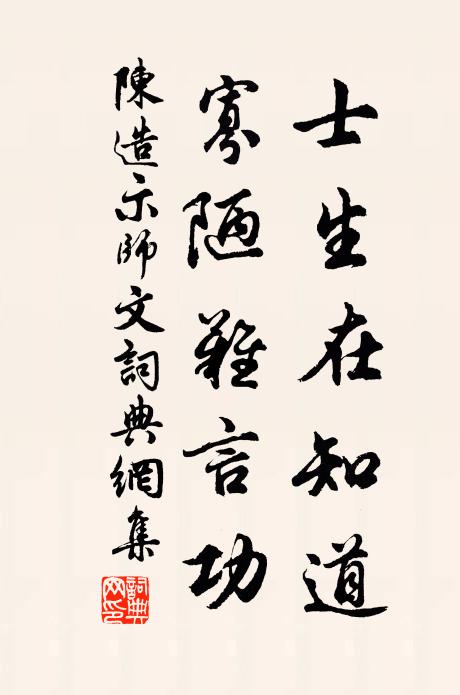 士生在知道
寡陋難言功
陳造示師文詞典網集
詞典网印